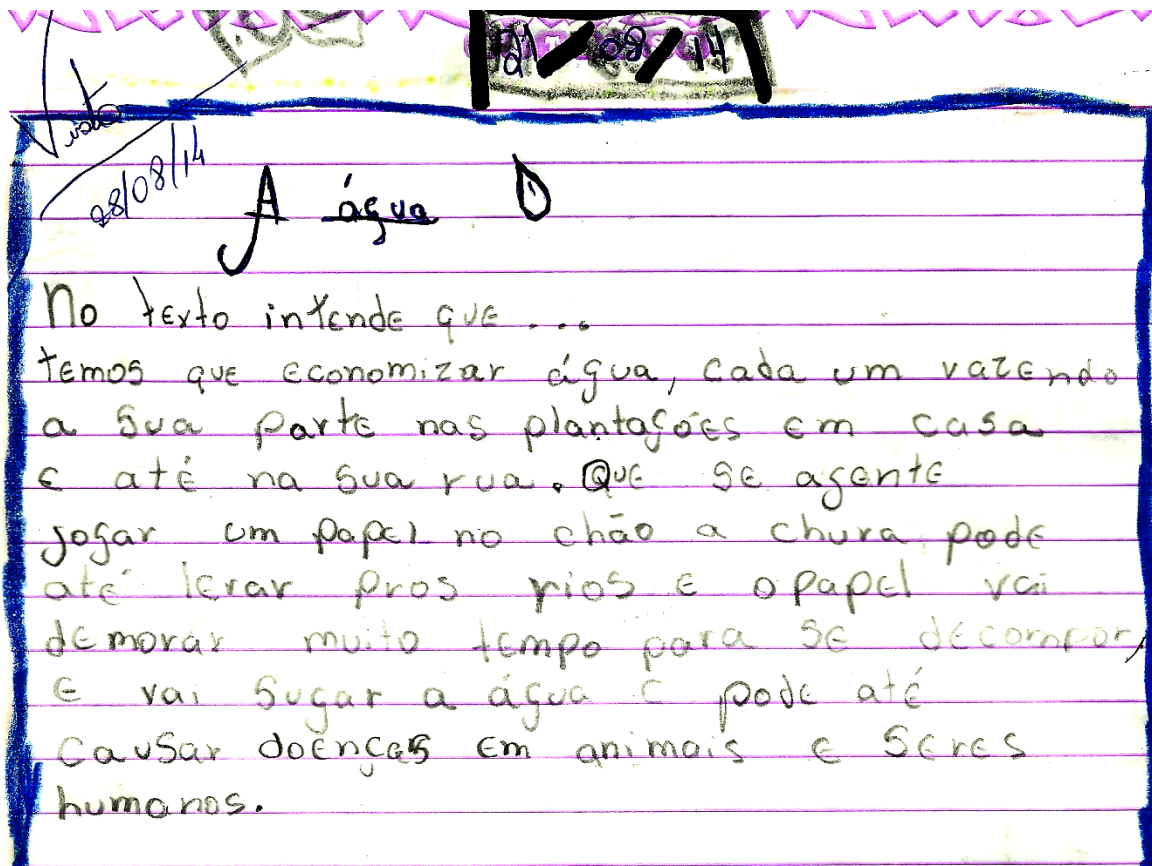 21/08/14
Visto
28/08/14
A água
No texto intende que ...
temos que economizar água, cada um vazendo
a sua parte nas plantações em casa
e até na sua rua. Que se agente
jogar um papel no chão a chura pode
até levar pros rios e o papel vai
demorar muito tempo para se decompor,
e vai sugar a água e pode até
causar doenças em animais e seres
humanos.